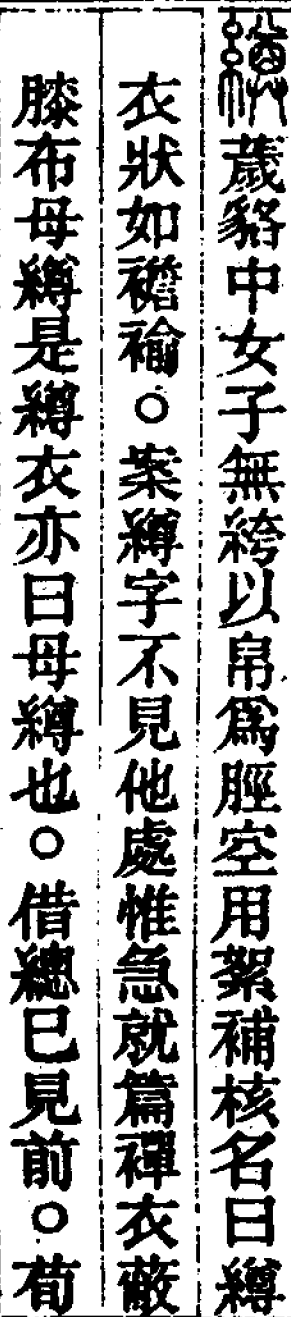 繜薉貉中女子無袴以帛爲脛空用絮補核名曰繜
衣狀如襜褕○案繜字不見他處惟急就篇襌衣蔽
膝布母繜是繜衣亦曰母繜也○借繐已見前○荀